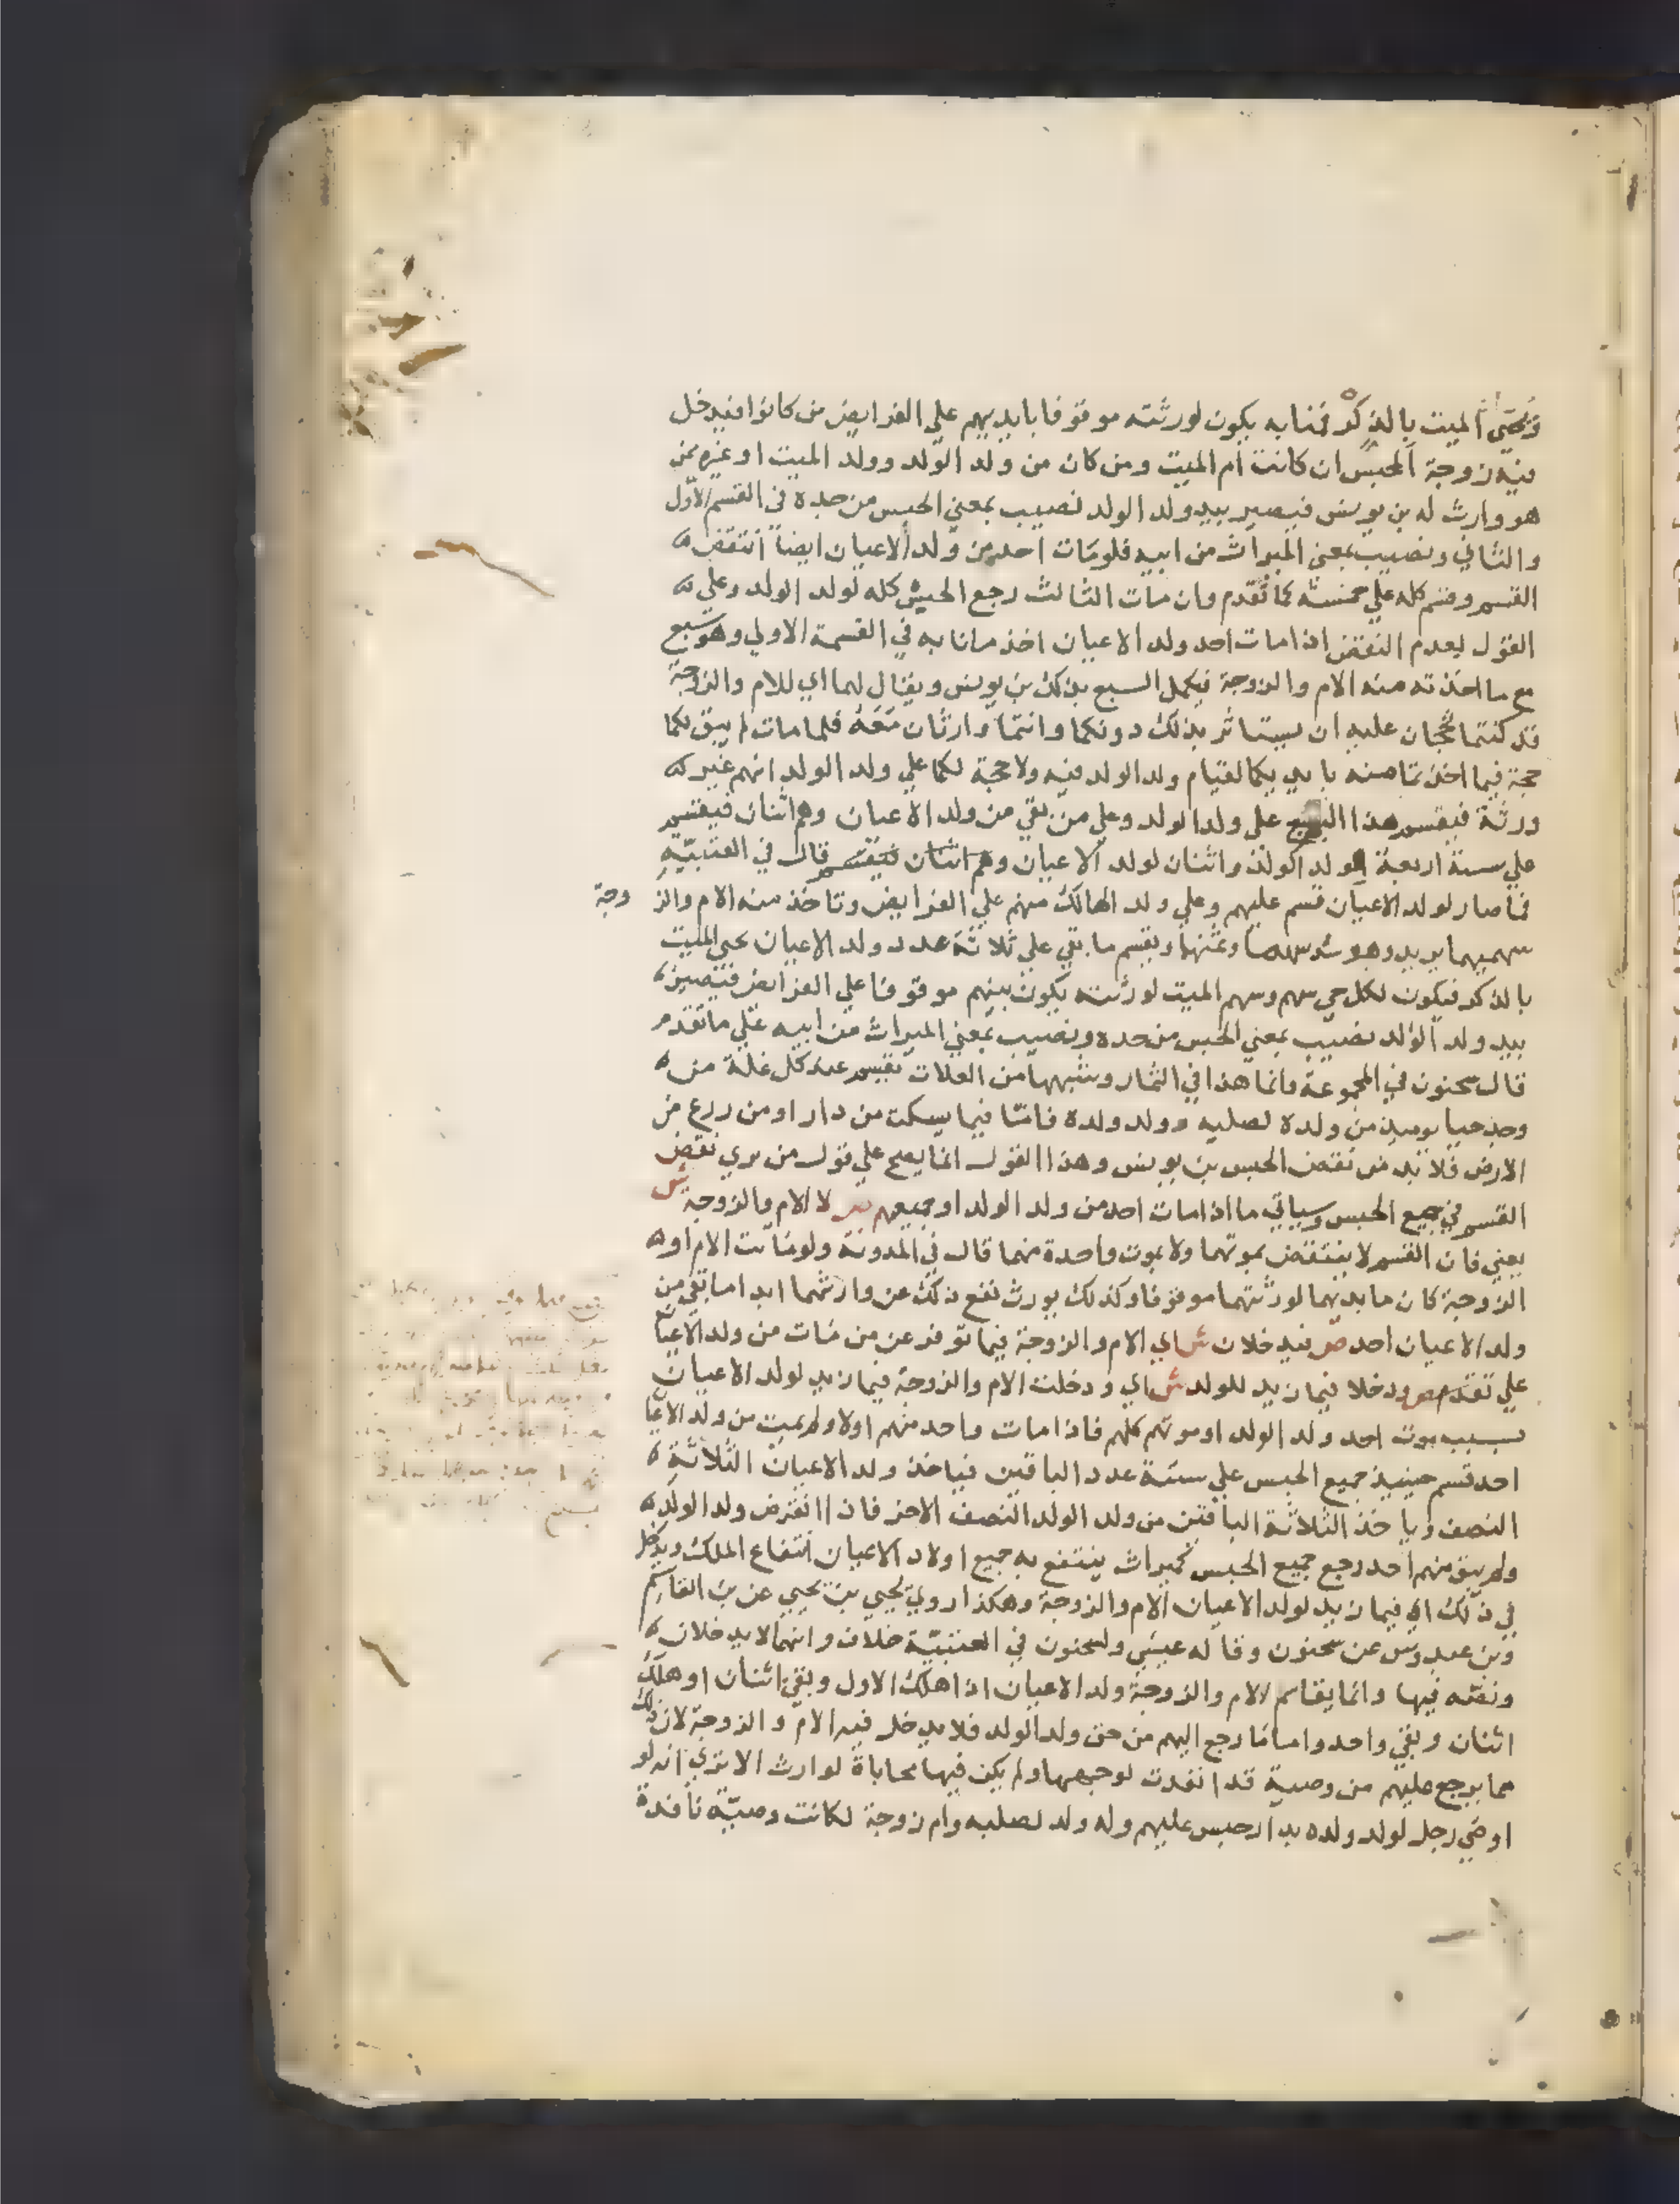 ويحيى الميت بالذكر فمنا به يكون لورثته موقوفا بايديهم علي الفرايض من كانوا فيدخل
فيه زوجة المحبس ان كانت ام الميت ومن كان من ولد الولد وولد الميت او غيره ممن
هو وارث له بن يونس فيصير بيد ولد الولد نصيب بمعني الحبس من جده في القسم الاول
والثاني ونصيب بمعني الميراث من ابيه فلو مات احد من ولد الاعيان ايضا انتقض
القسم وضم كله علي خمسة كما تقدم وان مات الثالث رجع الحبس كله لولد الولد وعلي
القول بعدم النقض اذا مات احد ولد الاعيان اخذ ما نابه في القسمة الاولي وهو سبع
مع ما اخذته منه الام والزوجة فيكمل السبع بذلك بن يونس ويقال لهما اي للام والزوجة
قد كنتما تحجان عليه ان يستاثر بذلك دونكما وانتما وارثان معه فلما مات لم يبق لكما
حجة فيما اخذتما منه بايديكما لقيام ولد الولد فيه ولا حجة لكما علي ولد الولد انهم غير
ورثة فيقسم هذا السبع علي ولد الولد وعلي من بقي من ولد الاعيان وهم اثنان فيقسم
علي ستة اربعة لولد الولد واثنان لولد الاعيان وهم اثنان فيقسم قال في العتبية
فما صار لولد الاعيان قسم عليهم وعلي ولد الهالك منهم علي الفرايض وتاخذ منه الام والزوجة
سهميهما يريد وهو سدسها وثمنها ويقسم ما بقي علي ثلاثة عدد ولد الاعيان يحيى الميت
بالذكر فيكون لكل حي سهم وسهم الميت لورثته يكون بينهم موقوفا علي الفرايض فيصير
بيد ولد الولد نصيب بمعني الحبس من جده ونصيب بمعني الميراث من ابيه علي ما تقدم
قال سحنون في المجموعة وانما هذا في الثمار وشبهها من الغلات تقسم عند كل غلة من
وجد حيا يوميذ من ولده لصلبه وولد ولده فاما فيما يسكن من دار او من زرع من
الارض فلا بد من نقض الحبس بن يونس وهذا القول انما يصح علي قول من يري نقض
القسم في جميع الحبس وسياتي ما اذا مات احد من ولد الولد او جميعهم ص لا الام والزوجة ش
يعني فان القسم لا ينتقض بموتهما ولا بموت واحدة منهما قال في المدونة ولو ماتت الام او
الزوجة كان ما بيديهما لورثتهما موقوفا وكذلك يورث نفع ذلك عن وارثهما ابدا ما بقي من
ولد الاعيان احد ص فيدخلان ش اي الام والزوجة فيما توفر عن من مات من ولد الاعيا
علي تقدم ص ودخلا فيما زيد للولد ش اي ودخلت الام والزوجة فيما زيد لولد الاعيان
بسبب موت احد ولد الولد او موتهم كلهم فاذا مات واحد منهم اولا ولم يمت من ولد الاعيا
احد قسم حينيذ جميع الحبس علي ستة عدد الباقين فياخذ ولد الاعيان الثلاثة
النصف وياخذ الثلاثة الباقين من ولد الولد النصف الاخر فاذا انقرض ولد الولد
ولم يبق منهم احد رجع جميع الحبس كميراث ينتفع به جميع اولاد الاعيان انتفاع الملك ويدخل
في ذلك اي فيما زيد لولد الاعيان الام والزوجة وهكذا روي يحيي بن يحيي عن بن القاسم
وبن عبدوس عن سحنون وقاله عيسي ولسحنون في العتبية خلاف وانهما لا يدخلان
ونصه فيها وانما يقاسم الام والزوجة ولد الاعيان اذا هلك الاول وبقي اثنان او هلك
اثنان وبقي واحد واما ما رجع اليهم من حق ولد الولد فلا يدخل فيه الام والزوجة لان ذلك
مما يرجع عليهم من وصية قد انفدت لوجهها ولم يكن فيها محاباة لوارث الا تري انه لو
اوصي رجل لولد ولده بدار حبس عليهم وله ولد لصلبه وام زوجة لكانت وصية نافدة